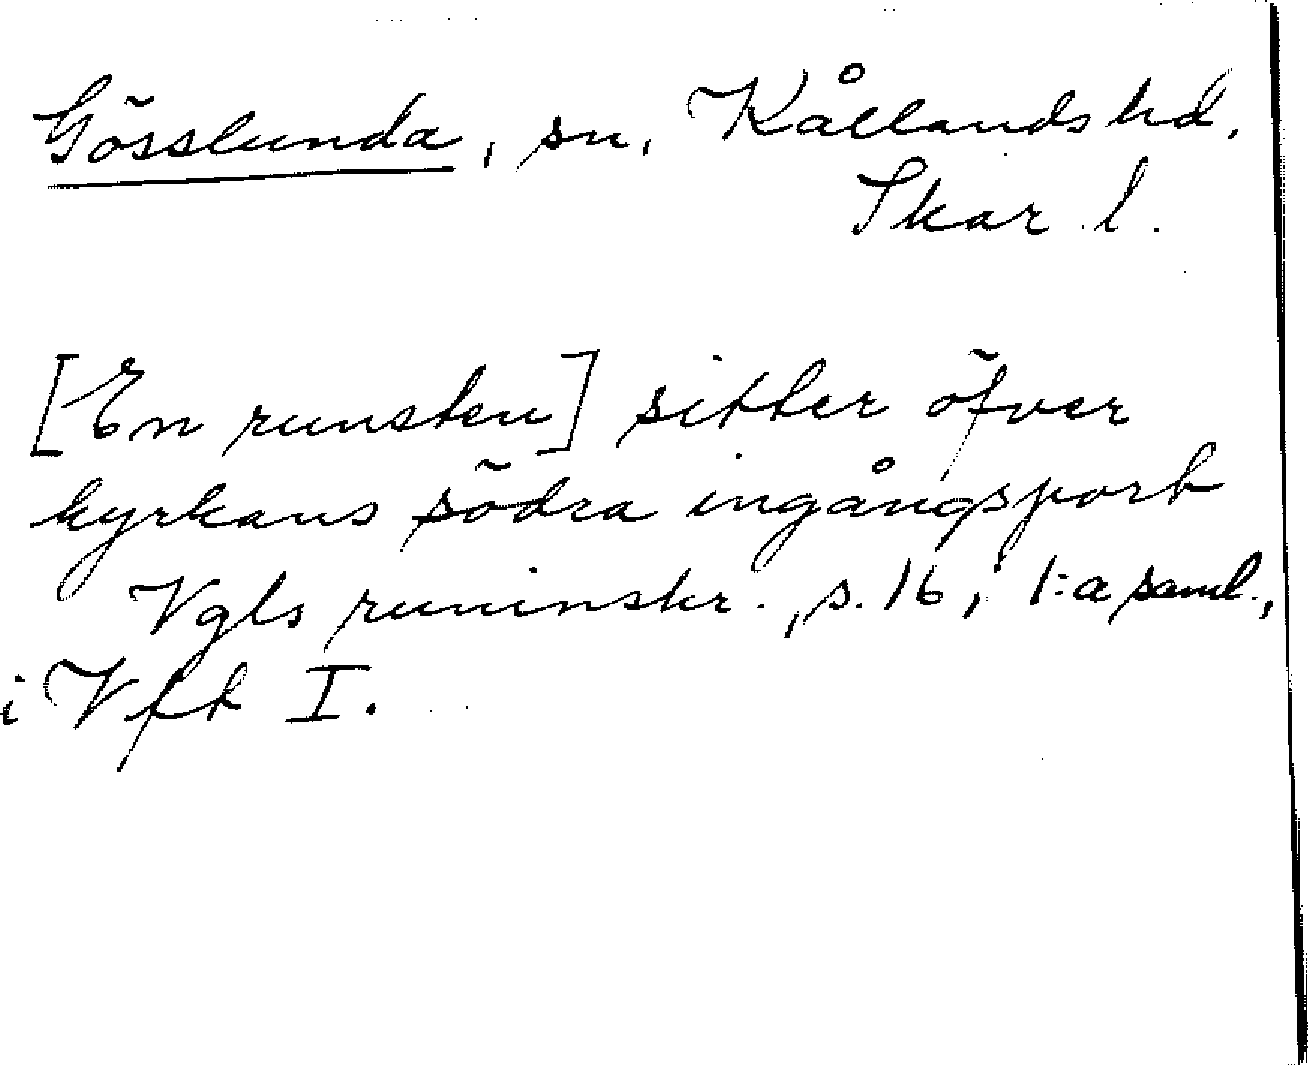 Gösslunda, sn, Kållands hd.
Skar. l.
[En runsten] sitter öfver
kyrkans södra ingångsport
Vgls runinskr., s. 16, 1:a saml.,
i Vft I.